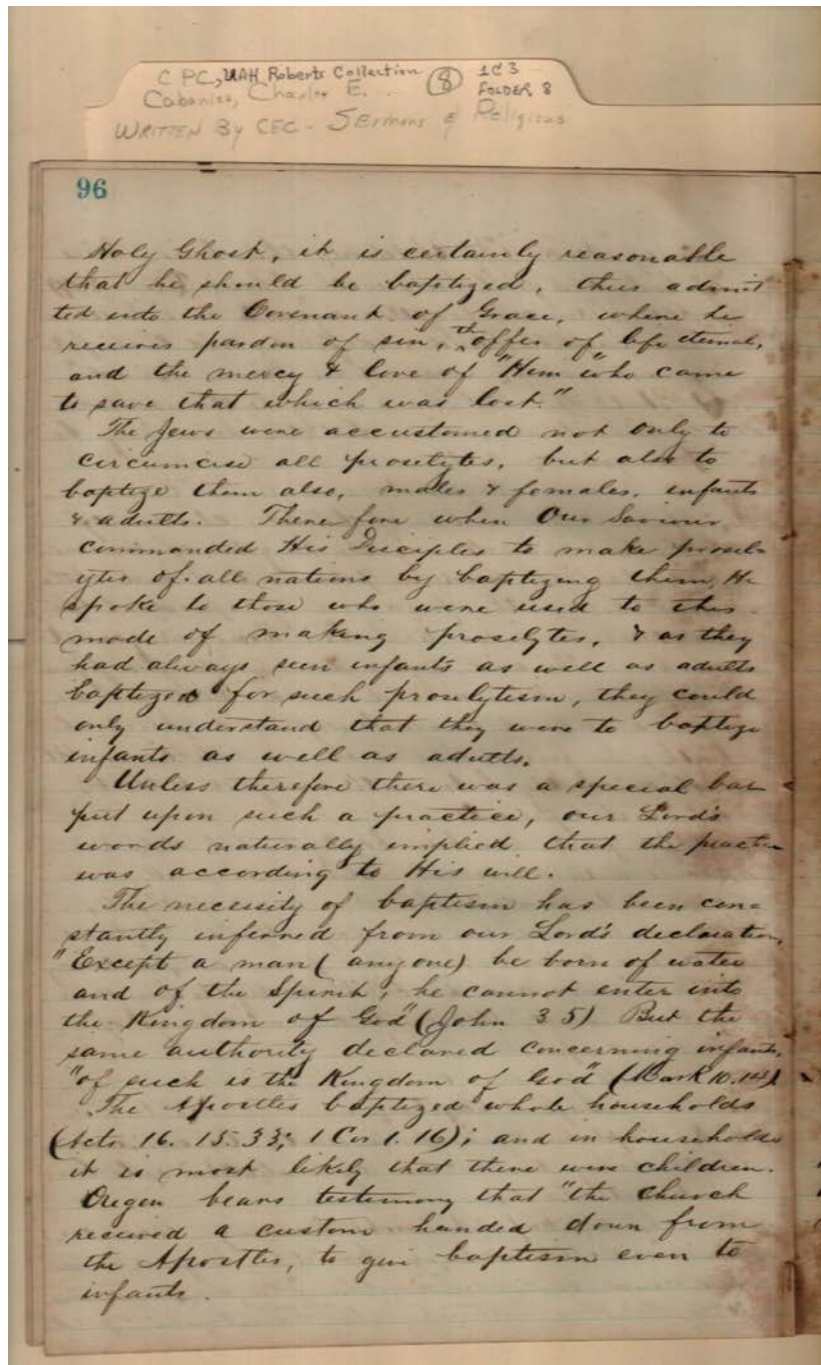 C PC, UAH Roberts Collection (8) 1C3
Cabaniss, Charles E. FOLDER 8
WRITTEN By CEC - SErmons & Religious
96
Holy Ghost, it is certainly reasonable
that he should be baptized, thus admit
ted into the Covenant of Grace, where he
receives pardon of sin, the offer of life eternal,
and the mercy & love of "Him "who came
to save that which was lost."
The Jews were accustomed not only to
circumcise all proselytes, but also to
baptize them also, males & females, infants
& adults. There fore when Our Saviour
commanded His Disciples to make prosel-
ytes of all nations by baptizing them, He
spoke to those who were used to this
mode of making proselytes, & as they
had always seen infants as well as adults
baptized for such proselytism, they could
only understand that they were to baptize
infants as well as adults.
Unless therefore there was a special bar
put upon such a practice, our Lord's
words naturally implied that the practice
was according to His will.
The necessity of baptism has been con=
stantly inferred from our Lord's declaration,
"Except a man (any one) be born of water
and of the Spirit, he cannot enter into
the Kingdom of God" (John 3 5) But the
same authority declared concerning infants,
"of such is the Kingdom of God" (Mark 10. 14)
The Apostles baptized whole households
(Acts 16. 15. 33; 1 Cor 1. 16); and in households
it is most likely that there were children.
Origen bears testimony that "the church
received a custom handed down from
the Apostles, to give baptism even to
infants.